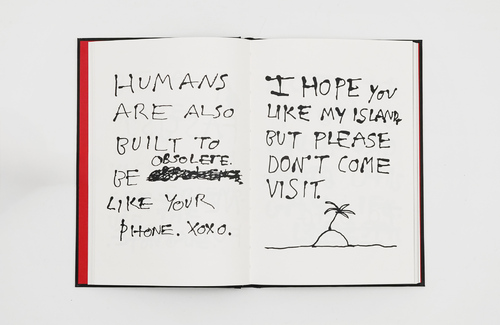 HUMANS
ARE ALSO
BUILT TO
OBSOLETE.
BE
LIKE YOUR
PHONE. XOXO.
I HOPE YOU
LIKE MY ISLAND
BUT PLEASE
DON'T COME
VISIT.